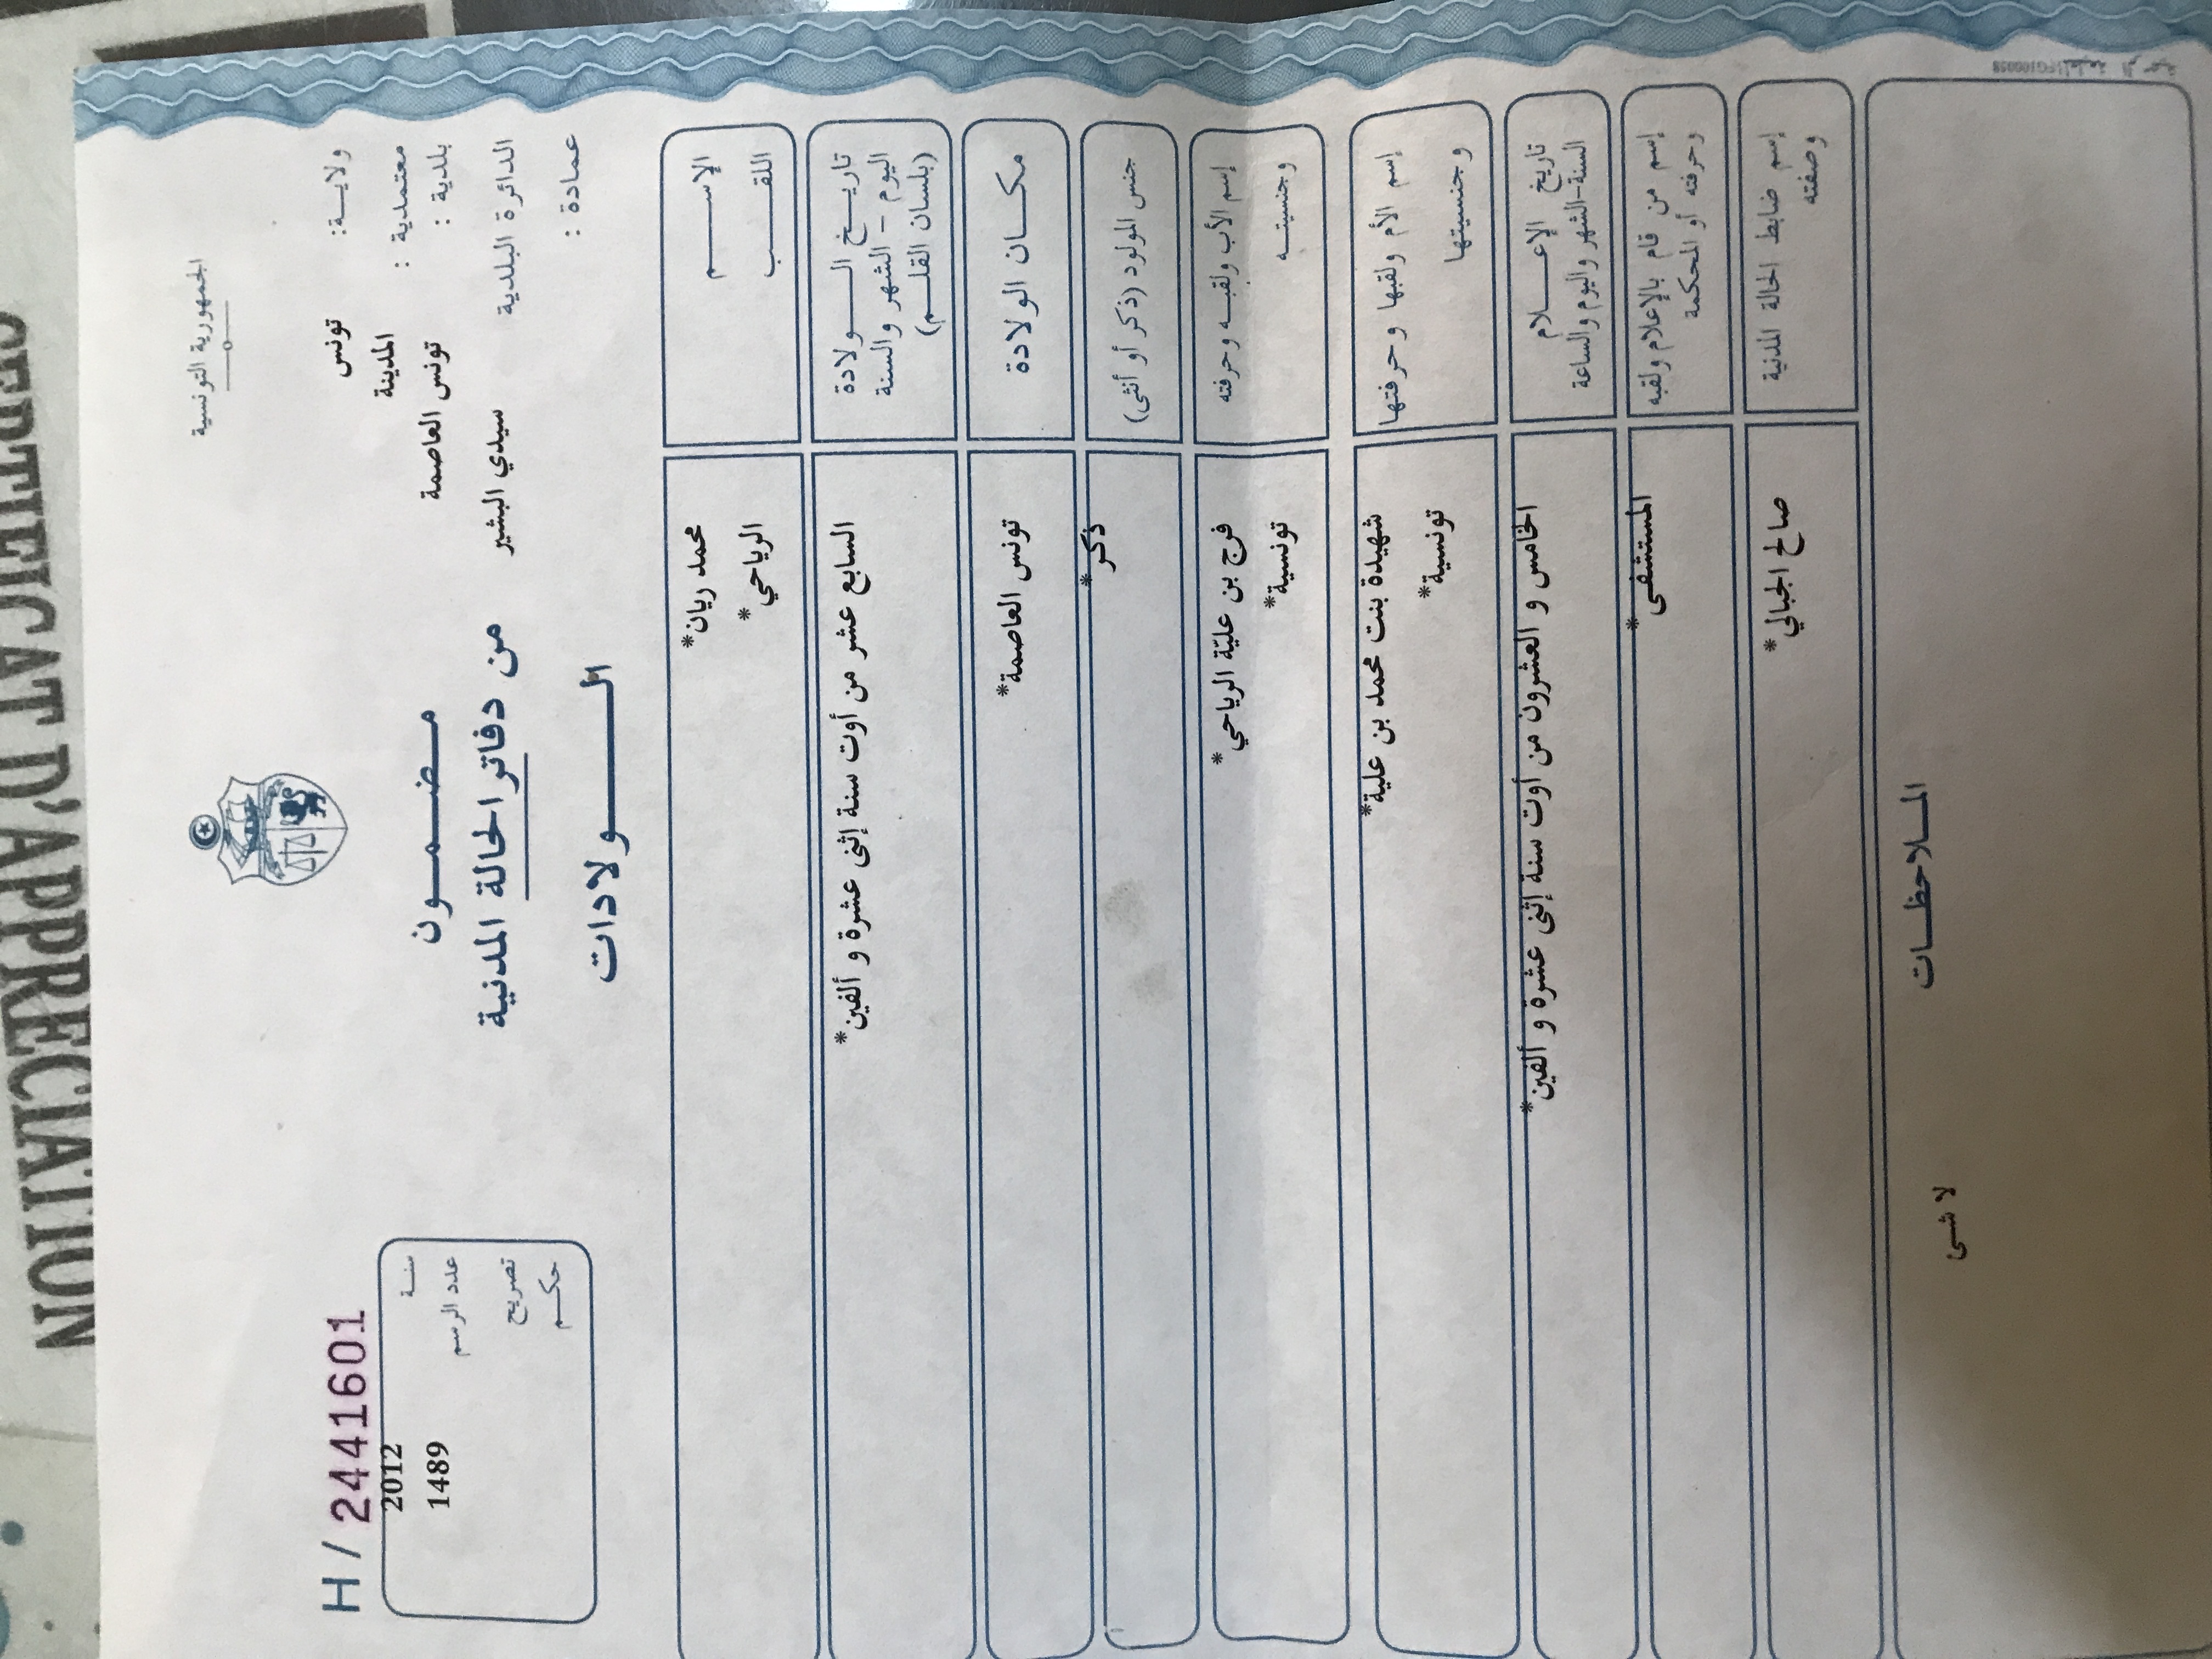 CERTIFICAT D'APPRECIATION
الجمهورية التونسية
ولايـــة: تونس
معتمدية : المدينة
بلدية : تونس العاصمة
الدائرة البلدية سيدي البشير
عمادة :
مـضـمـــون
من دفاتر الحالة المدنية
الـــــولادات
H / 2441601
سنــة 2012
عدد الرسم 1489
تصريح
حكــم
الإســــم
محمد ريان*
اللقــــب
الرياحي*
تاريــخ الـــولادة
اليوم - الشهر والسنة
(بلسان القلــم)
السابع عشر من أوت سنة إثنى عشرة و ألفين*
مكــان الولادة
تونس العاصمة*
جنس المولود (ذكر أو أنثى)
ذكر*
إسم الأب ولقبــه وحرفته
وجنسيتــه
فرج بن عليّة الرياحي*
تونسية*
إسم الأم ولقبها وحرفتها
وجنسيتها
شهيدة بنت محمد بن علية*
تونسية*
تاريخ الإعـــلام
السنة-الشهر واليوم والساعة
الخامس و العشرون من أوت سنة إثنى عشرة و ألفين*
إسم من قام بالإعلام ولقبه
وحرفته أو المحكمة
المستشفى*
إسم ضابط الحالة المدنية
وصفته
صالح الجبالي*
المــلاحظــات
لا شئ